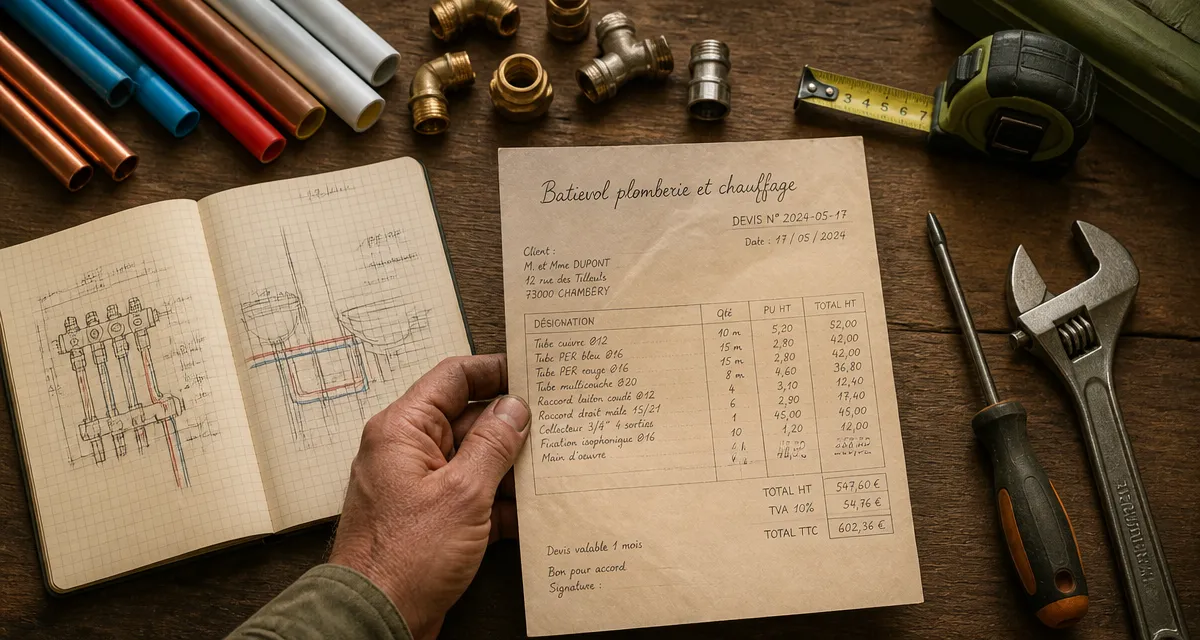 Batievol plomberie et chauffage
DEVIS N° 2024-05-17
Date : 17 / 05 / 2024
Client :
M. et Mme DUPONT
12 rue des Tilleuls
73000 CHAMBÉRY
DÉSIGNATION Qté PU HT TOTAL HT
Tube cuivre Ø12 10 m 5,20 52,00
Tube PER bleu Ø16 15 m 2,80 42,00
Tube PER rouge Ø16 15 m 2,80 42,00
Tube multicouche Ø20 8 m 4,60 36,80
Raccord laiton coudé Ø12 4 3,10 12,40
Raccord droit mâle 15/21 6 2,90 17,40
Collecteur 3/4" 4 sorties 1 45,00 45,00
Fixation isophonique Ø16 10 1,20 12,00
Main d'oeuvre
TOTAL HT 547,60 €
TVA 10% 54,76 €
TOTAL TTC 602,36 €
Devis valable 1 mois
Bon pour accord
Signature :
3 4 5 6 7